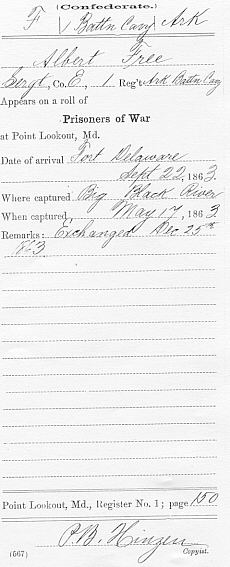 (Confederate.)
F 1 Battn Cavy Ark
Albert Free
Sergt, Co. E, 1 Reg't Ark Battn Cav
Appears on a roll of
Prisoners of War
at Point Lookout, Md.
Date of arrival Fort Delaware
Sept 22, 1863
Where captured Big Black River
When captured, May 17, 1863
Remarks: Exchanged Dec 25th
863
Point Lookout, Md., Register No. 1; page 150
P. B. Hinzen
(567) Copyist.